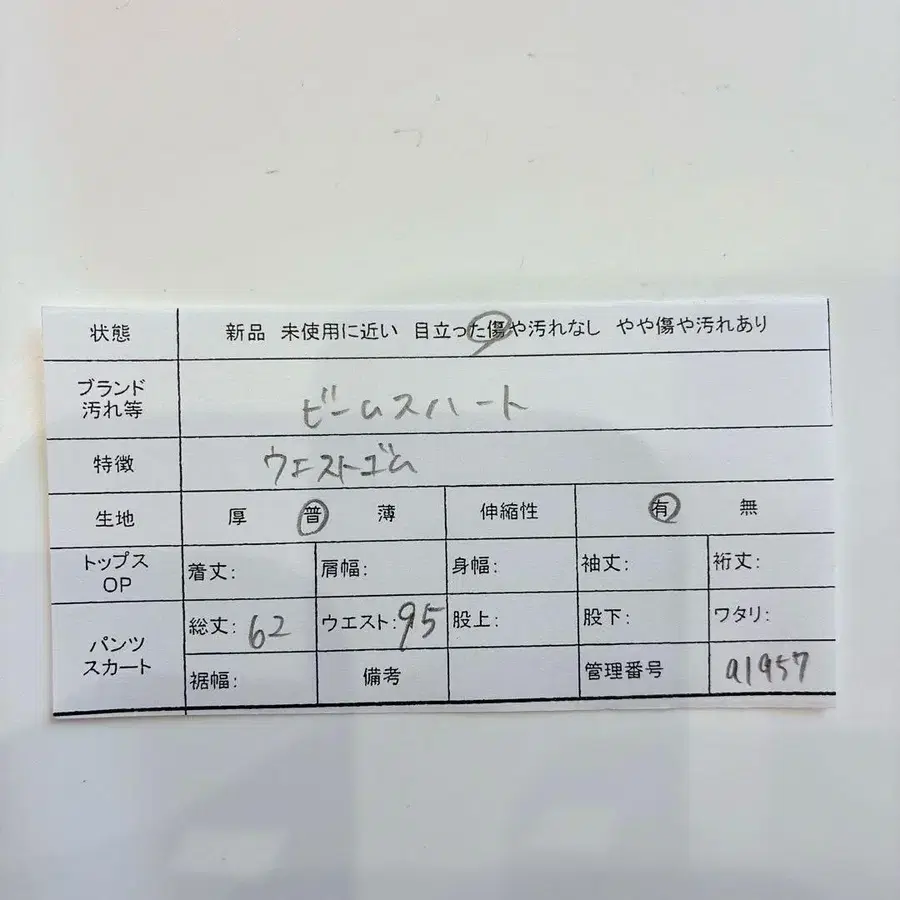 状態 新品 未使用に近い 目立った傷や汚れなし やや傷や汚れあり
ブランド
汚れ等
ビームスハート
特徴 ウエストゴム
生地 厚 普 薄 伸縮性 有 無
トップス
OP
着丈: 肩幅: 身幅: 袖丈: 裄丈:
パンツ
スカート
総丈:62 ウエスト:95 股上: 股下: ワタリ:
裾幅: 備考 管理番号 a1957